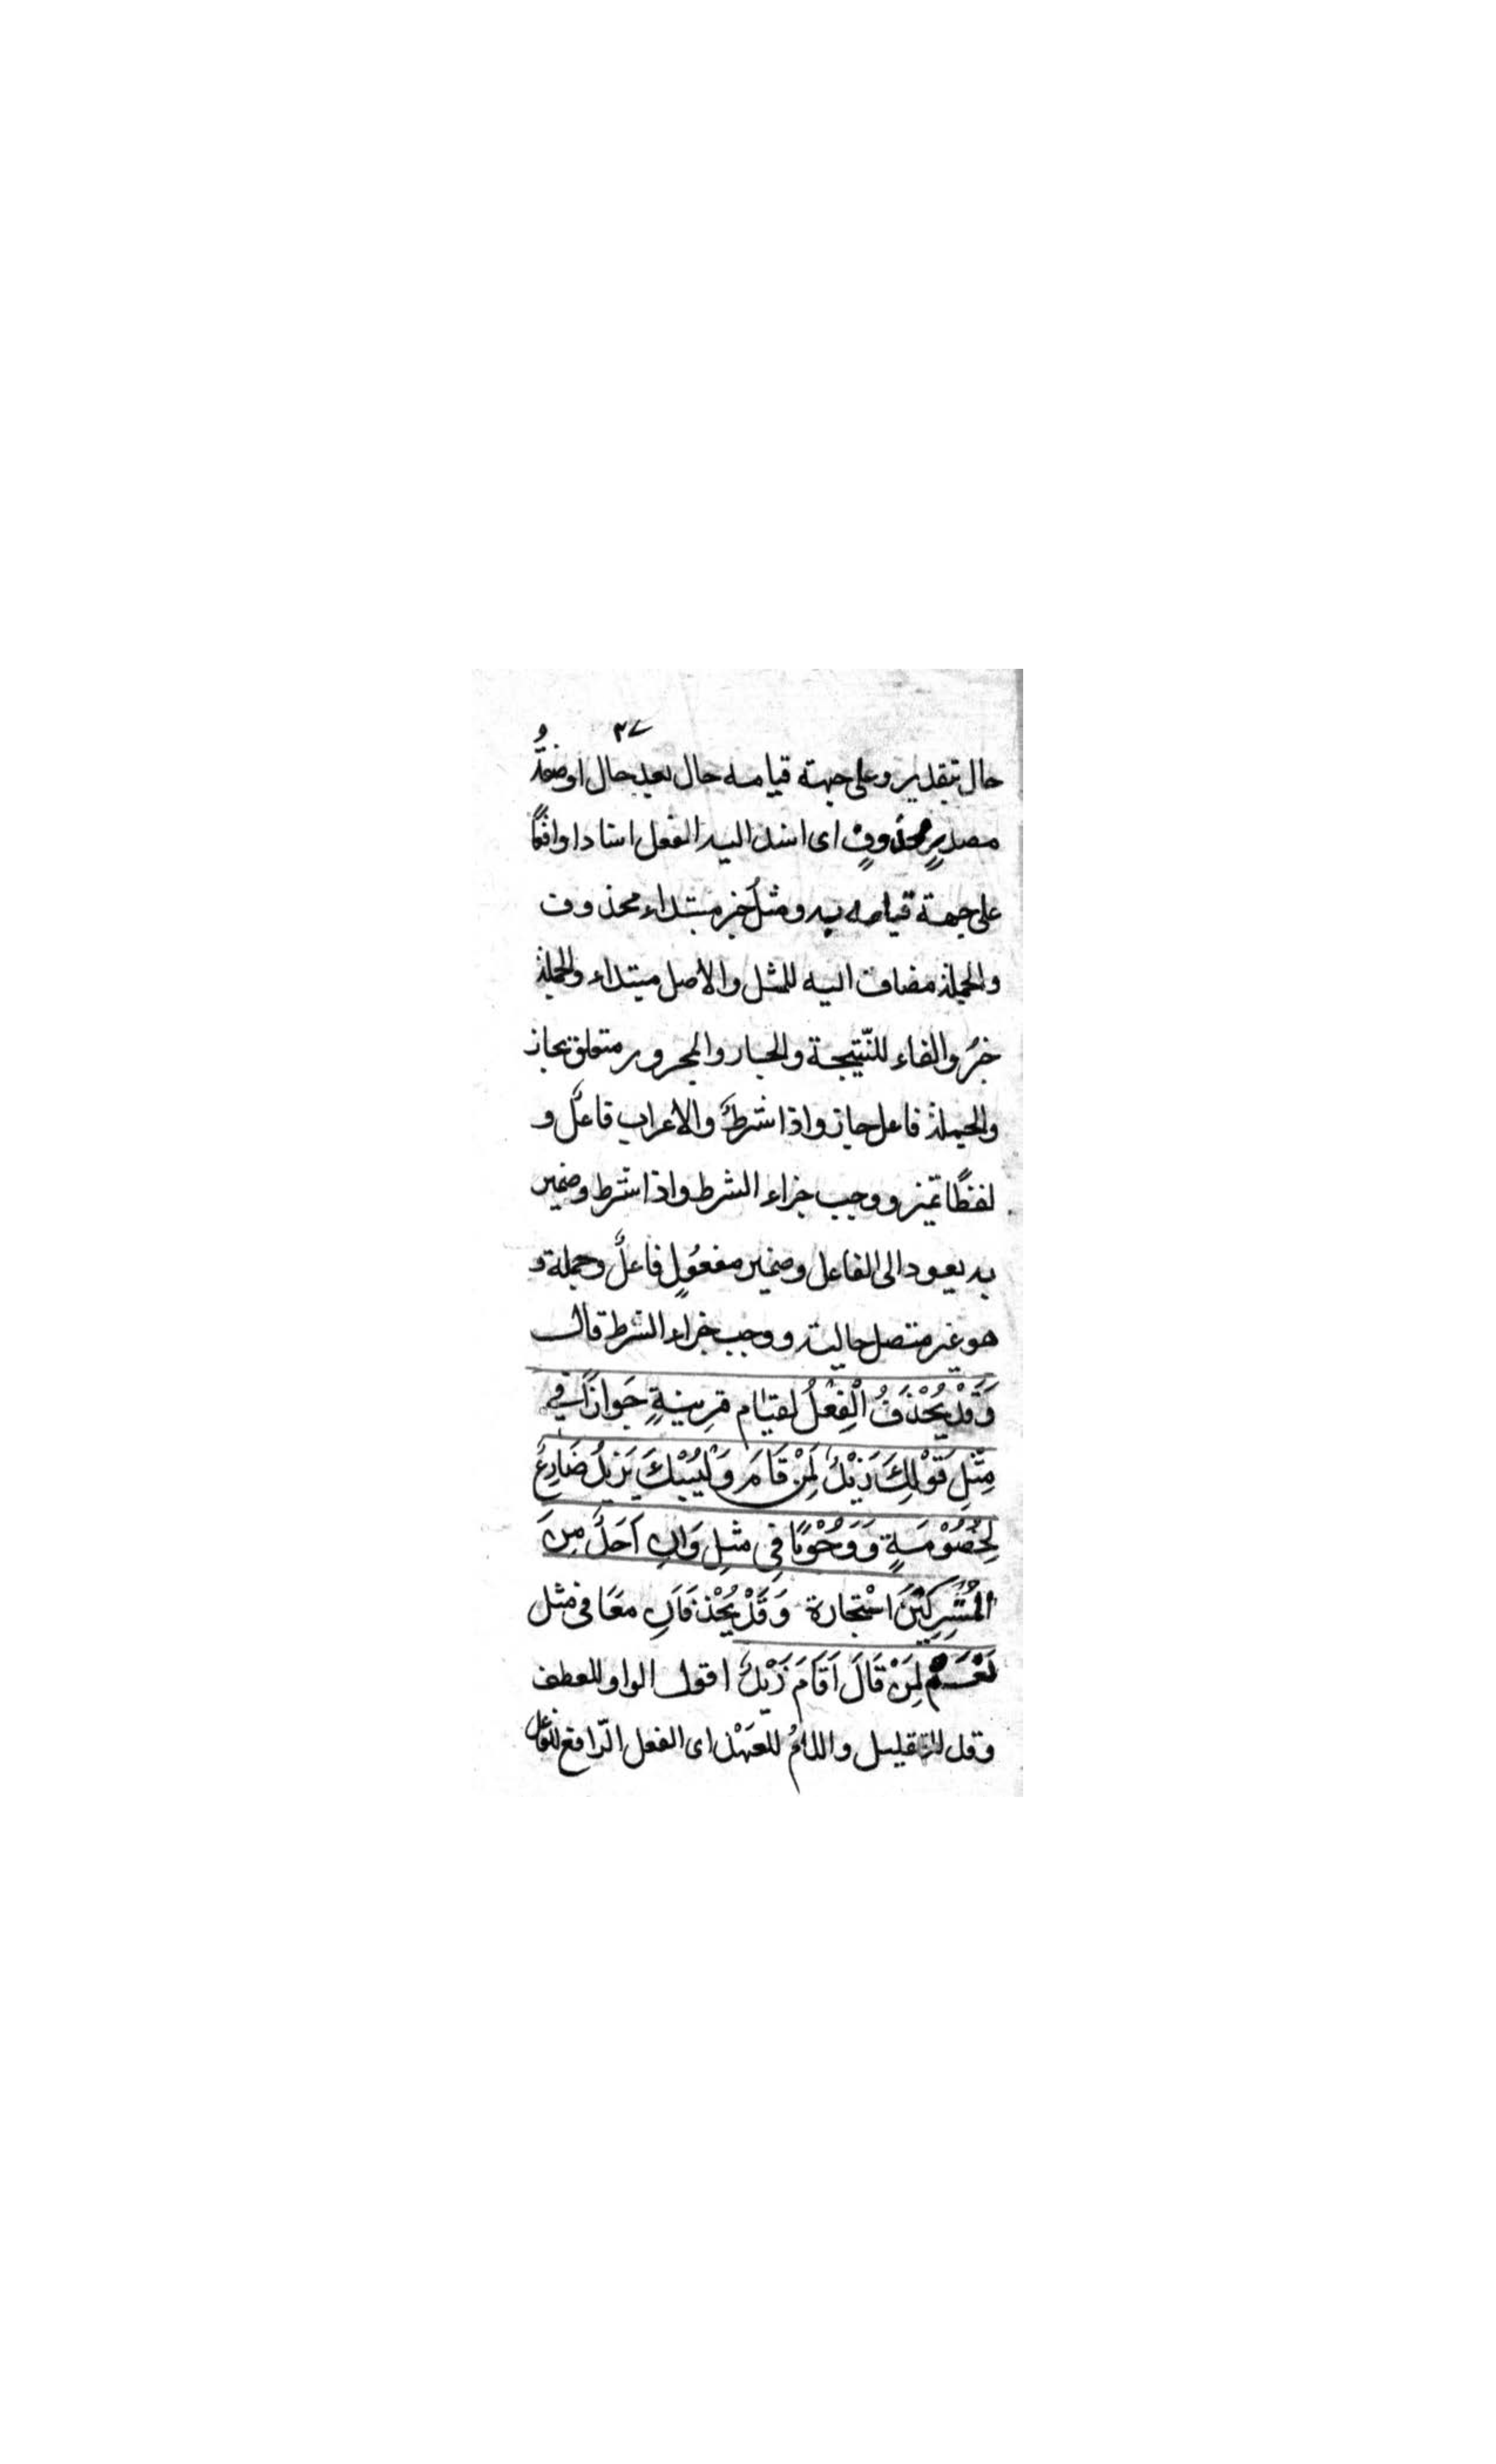 ٣٧
حال بتقدير وعلى جهة قيامه حال بعد حال او صفةُ
مصدرٍ محذوفٍ اى اسند اليه الفعل اسنادا واقعًا
على جهة قيامه به ومثلُ خبر مبتداء محذوف
والجملة مضاف اليه للمثل والاصل مبتداء والجملة
خبرُ والفاء للنّتيجة والجار والمجرور متعلق بجاز
والجملة فاعل جاز واذا شرطً والاعراب فاعلً و
لفظًا تميز ووجب جزاء الشرط واذا شرط وضمير
به يعود الى الفاعل وضمير مفعُولٍ فاعلً وجملة و
هو غير متصل حالية ووجب جزاء الشرط قال
وَقَدْ يُحْذَفُ الْفِعْلُ لقيَام قرِينةٍ جَوَازًا فِي
مِثْلِ قَوْلِكَ زَيْدٌ لِمَنْ قَامَ وَلْيُبْكَ يَزيدُ ضَارِعٌ
لِخُصُوْمَةٍ وَوُجُوْبًا فِي مثلِ وَانِ اَحَدٌ مِنَ
الْمُشْرِكِيْنَ اسْتَجارة وَقَدْ يُحْذفَانِ معَا في مثل
نَعَمْ لِمَنْ قَالَ اَقَامَ زَيْدٌ اقول الواو للعطف
وقد للتقليل واللامُ للعَهْد اى الفعل الرّافع للفاعل